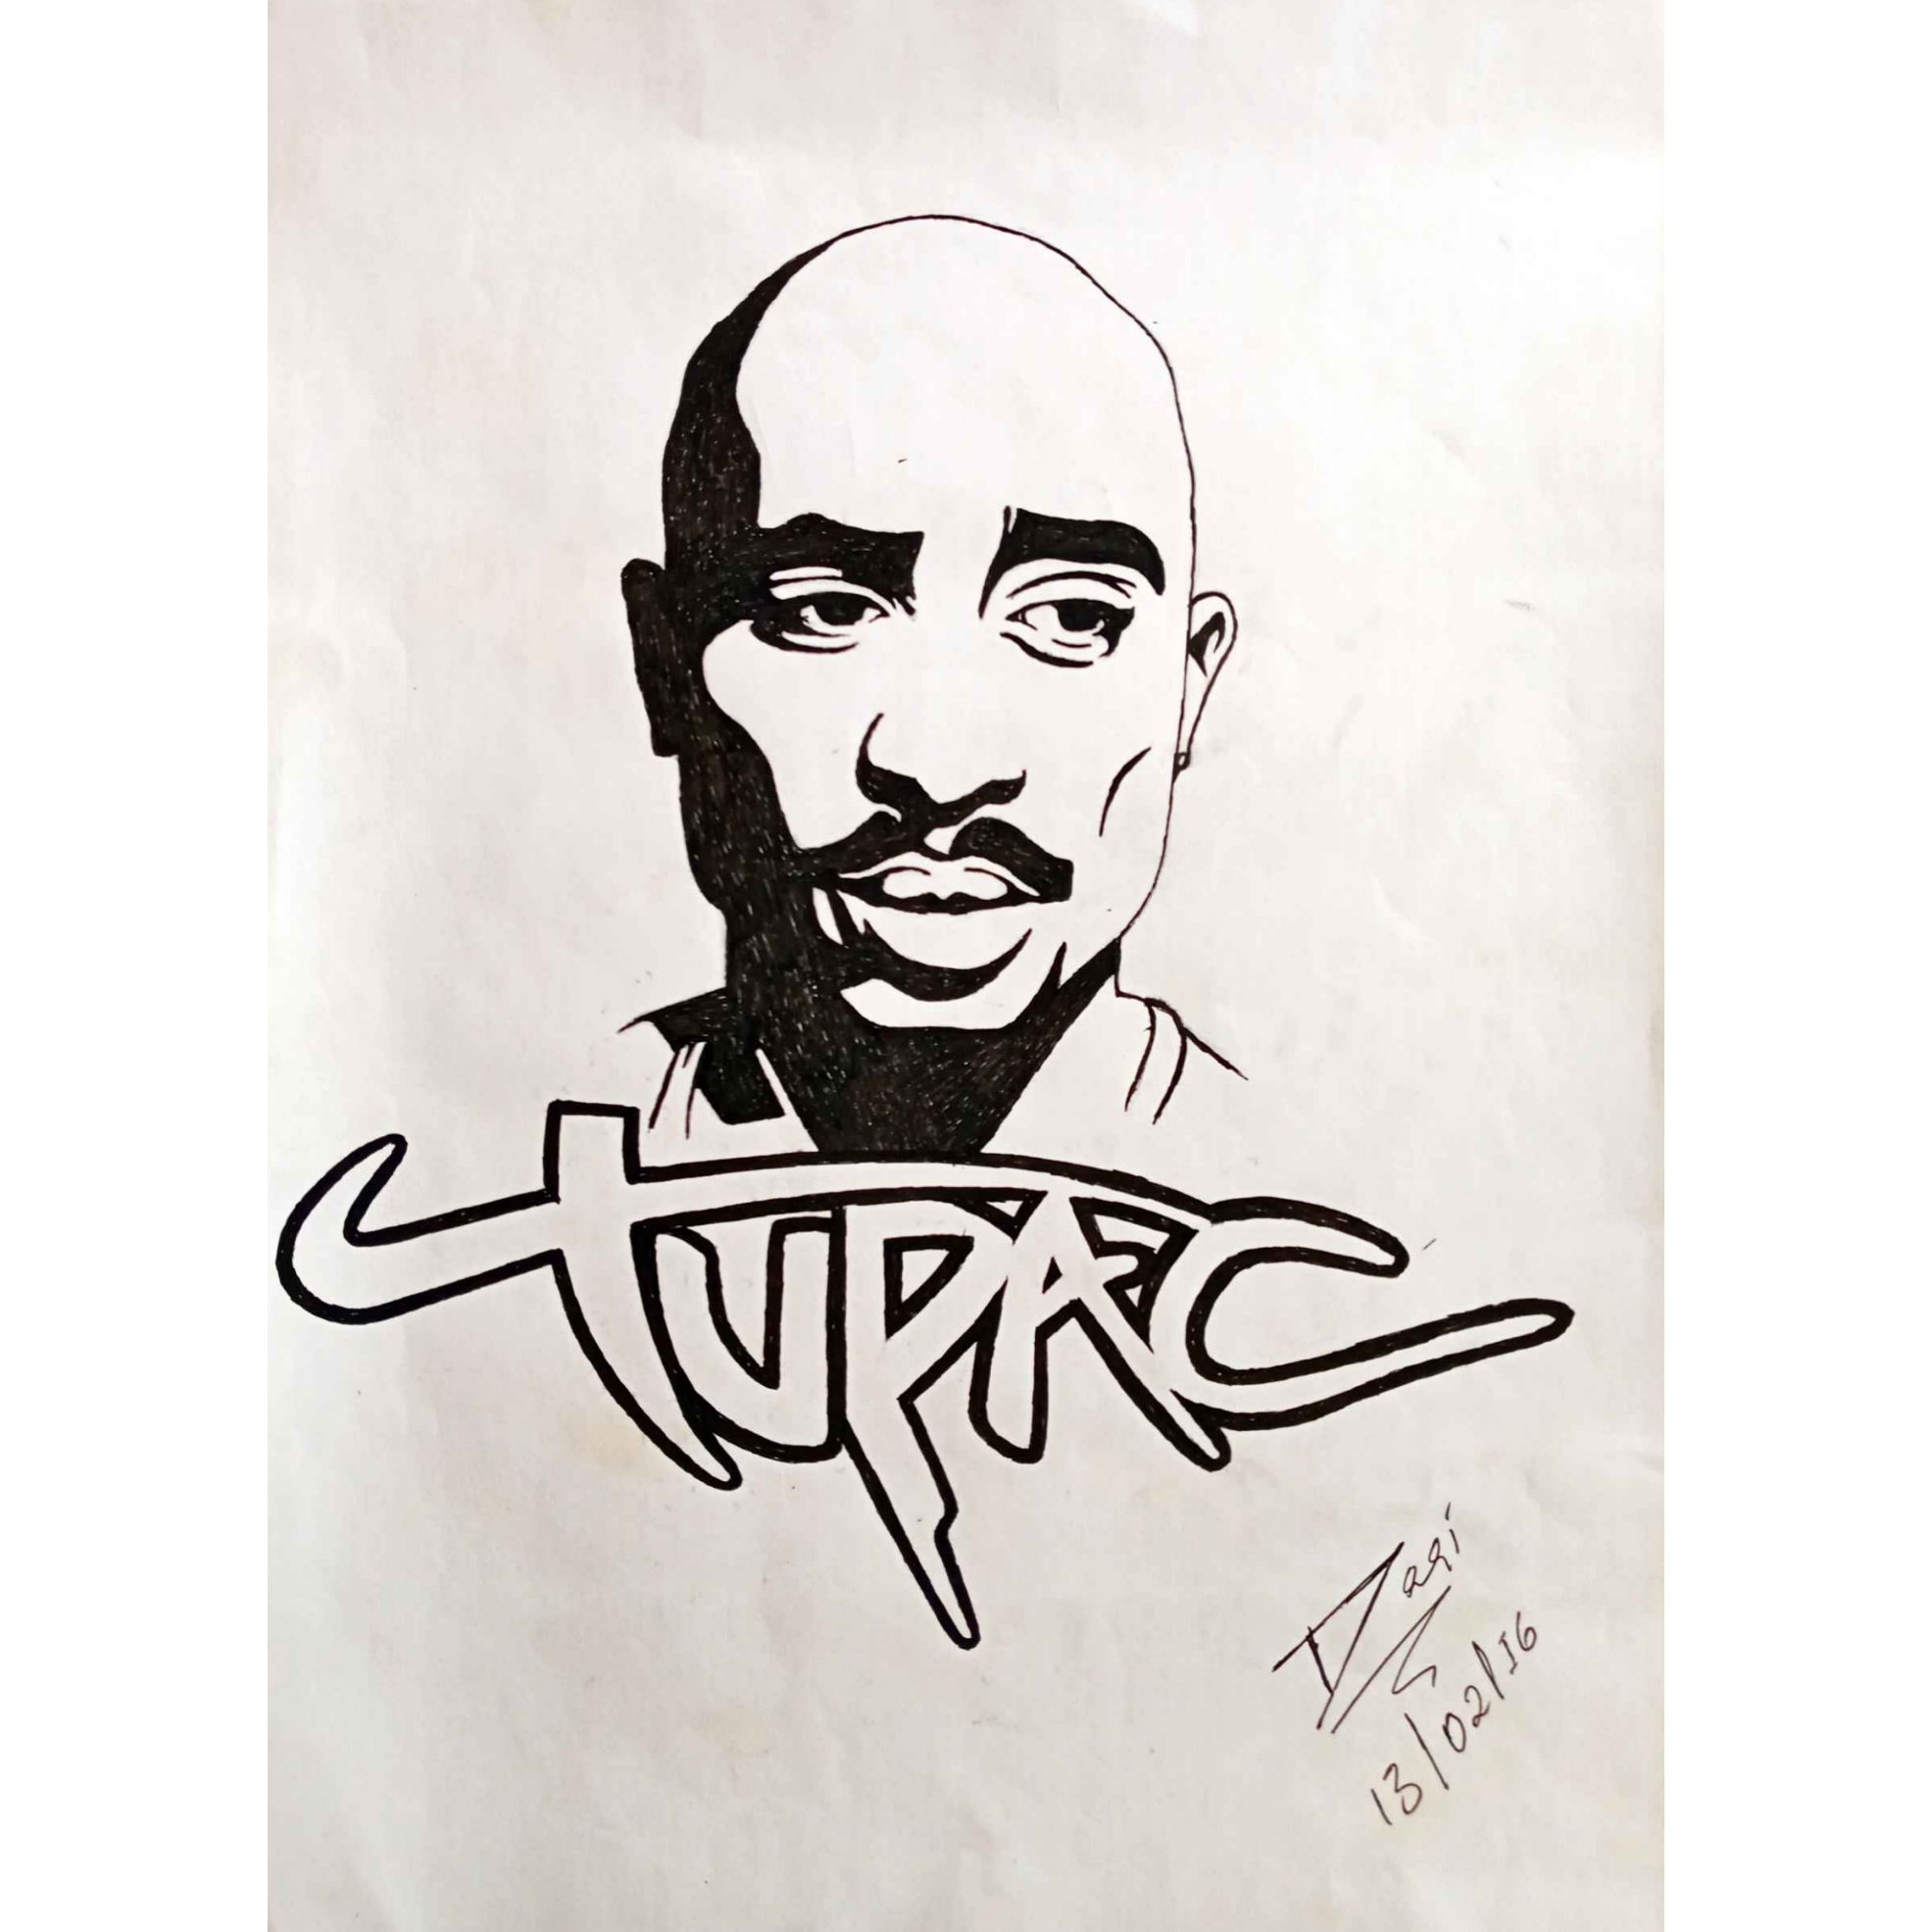 TUPAC
Dari
13/02/16